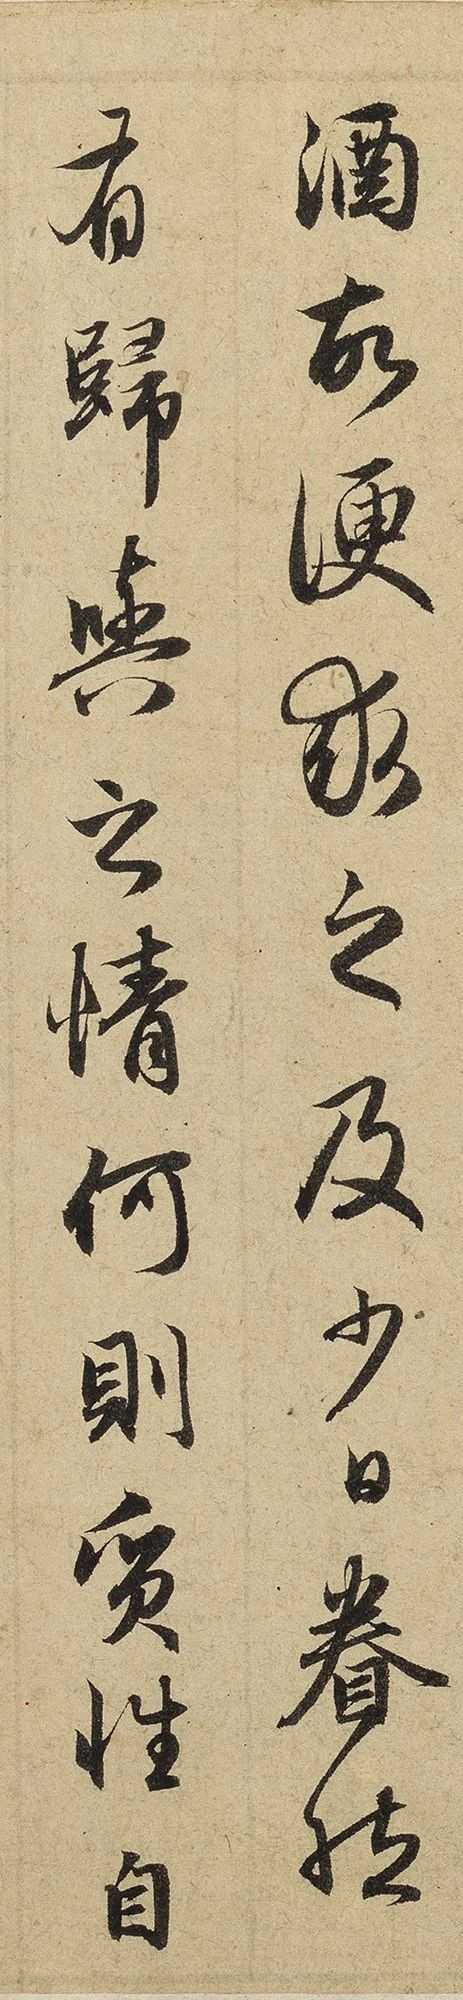 酒故便求之及少日眷然
有歸與之情何則質性自